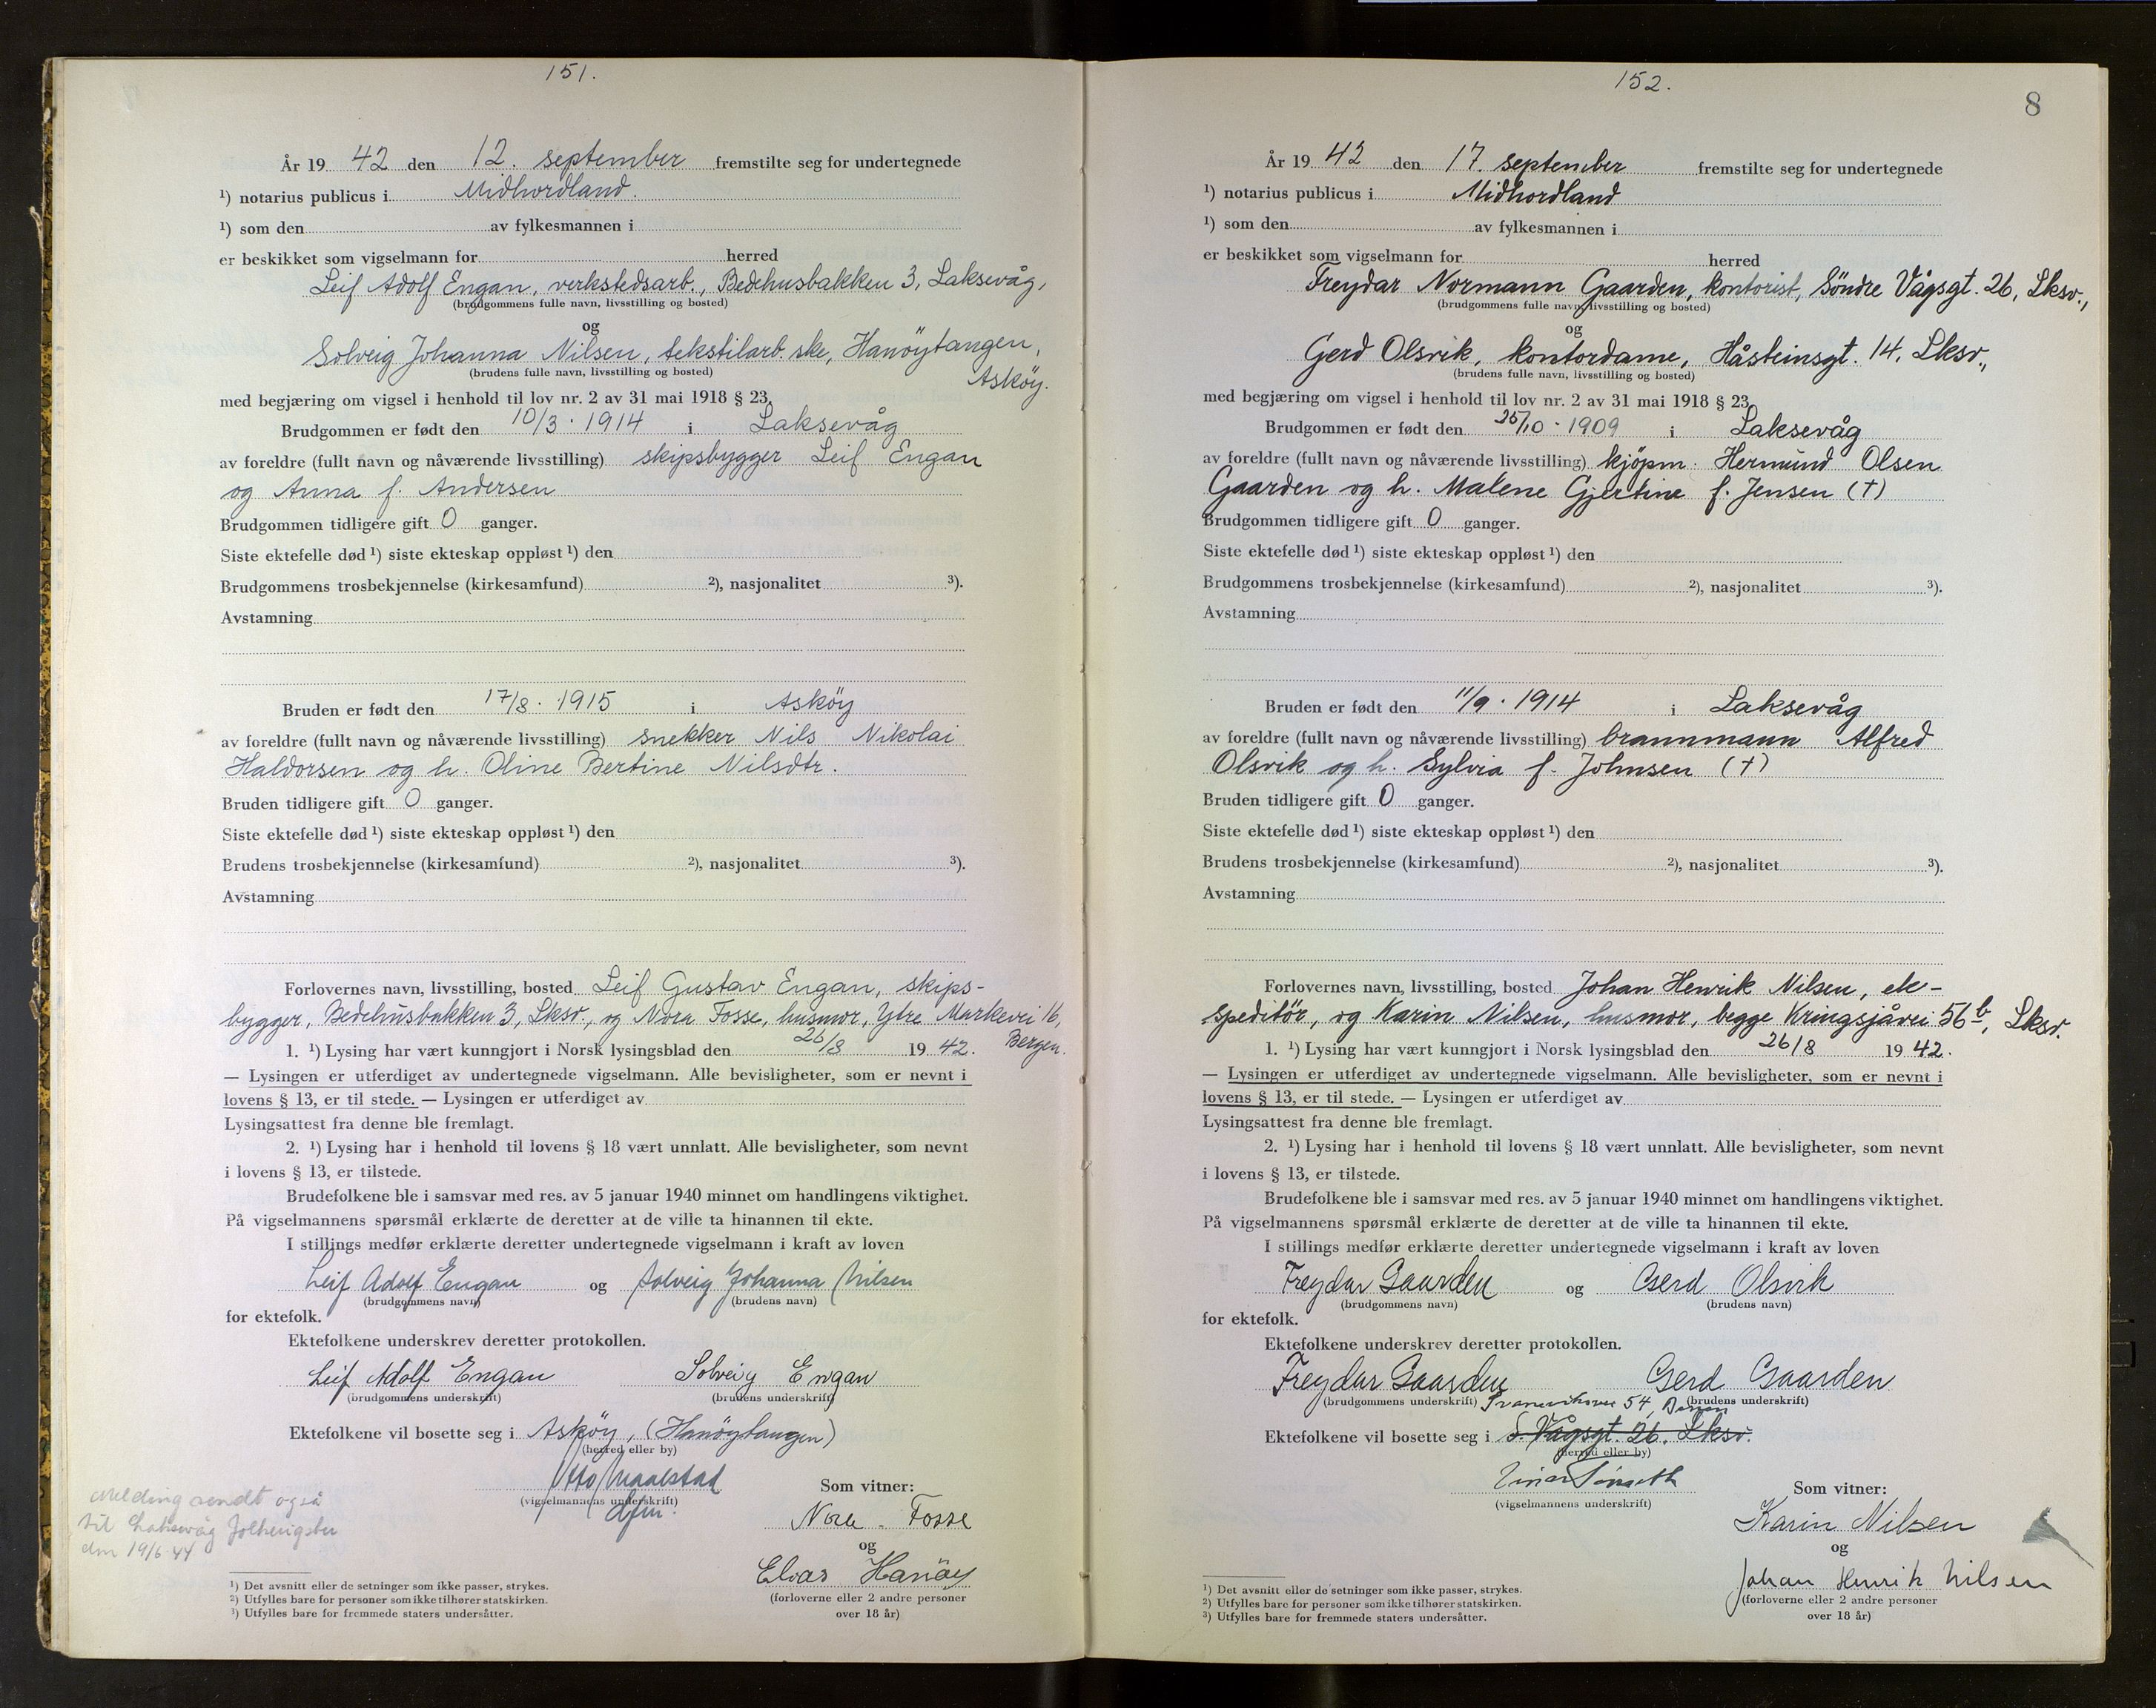 151.
År 19 42 den 12. september fremstilte seg for undertegnede
¹) notarius publicus i Midhordland.
¹) som den av fylkesmannen i
er beskikket som vigselmann for herred
Leif Adolf Engan, verkstedsarb., Bedehusbakken 3, Laksevåg,
(brudgommens fulle navn, livsstilling og bosted)
og
Solveig Johanna Nilsen, tekstilarb.ske, Hanöytangen,
(brudens fulle navn, livsstilling og bosted)
Asköy.
med begjæring om vigsel i henhold til lov nr. 2 av 31 mai 1918 § 23.
Brudgommen er født den 10/3 · 1914 i Laksevåg
av foreldre (fullt navn og nåværende livsstilling) skipsbygger Leif Engan
og Anna f. Andersen
Brudgommen tidligere gift 0 ganger.
Siste ektefelle død ¹) siste ekteskap oppløst ¹) den
Brudgommens trosbekjennelse (kirkesamfund) ²), nasjonalitet ³).
Avstamning
Bruden er født den 17/8 · 1915 i Asköy
av foreldre (fullt navn og nåværende livsstilling) snekker Nils Nikolai
Haldorsen og h. Oline Bertine Nilsdtr.
Bruden tidligere gift 0 ganger.
Siste ektefelle død ¹) siste ekteskap oppløst ¹) den
Brudens trosbekjennelse (kirkesamfund) ²), nasjonalitet ³).
Avstamning
Forlovernes navn, livsstilling, bosted Leif Gustav Engan, skips-
bygger, Bedehusbakken 3, Lksv., og Nora Fosse, husmor, Ytre Markevei 16,
Bergen.
1. ¹) Lysing har vært kunngjort i Norsk lysingsblad den 26/8 19 42.
— Lysingen er utferdiget av undertegnede vigselmann. Alle bevisligheter, som er nevnt i
lovens § 13, er til stede. — Lysingen er utferdiget av
Lysingsattest fra denne ble fremlagt.
2. ¹) Lysing har i henhold til lovens § 18 vært unnlatt. Alle bevisligheter, som nevnt
i lovens § 13, er tilstede.
Brudefolkene ble i samsvar med res. av 5 januar 1940 minnet om handlingens viktighet.
På vigselmannens spørsmål erklærte de deretter at de ville ta hinannen til ekte.
I stillings medfør erklærte deretter undertegnede vigselmann i kraft av loven
Leif Adolf Engan og Solveig Johanna Nilsen
(brudgommens navn) (brudens navn)
for ektefolk.
Ektefolkene underskrev deretter protokollen.
Leif Adolf Engan Solveig Engan
(brudgommens underskrift) (brudens underskrift)
Ektefolkene vil bosette seg i Asköy, (Hanöytangen)
(herred eller by)
Otto
(vigselmannens underskrift)
dfm.
Som vitner:
Nora Fosse
og
Hanöy
(forloverne eller 2 andre personer
over 18 år)
Melding sendt også
til Laksevåg
den 19/6-44
¹) Det avsnitt eller de setninger som ikke passer, strykes.
²) Utfylles bare for personer som ikke tilhører statskirken.
³) Utfylles bare for fremmede staters undersåtter.
152.
8
År 19 42 den 17. september fremstilte seg for undertegnede
¹) notarius publicus i Midhordland
¹) som den av fylkesmannen i
er beskikket som vigselmann for herred
Freydar Normann Gaarden, kontorist, Söndre Vågsgt. 26, Lksv.,
(brudgommens fulle navn, livsstilling og bosted)
og
Gerd Olsvik, kontordame, Håsteinsgt. 14, Lksv.,
(brudens fulle navn, livsstilling og bosted)
med begjæring om vigsel i henhold til lov nr. 2 av 31 mai 1918 § 23.
Brudgommen er født den 25/10 · 1909 i Laksevåg
av foreldre (fullt navn og nåværende livsstilling) kjöpm. Hermund Olsen
Gaarden og h. Malene Gjertine f. Jensen (†)
Brudgommen tidligere gift 0 ganger.
Siste ektefelle død ¹) siste ekteskap oppløst ¹) den
Brudgommens trosbekjennelse (kirkesamfund) ²), nasjonalitet ³).
Avstamning
Bruden er født den 11/9 · 1914 i Laksevåg
av foreldre (fullt navn og nåværende livsstilling) brannmann Alfred
Olsvik og h. Sylvia f. Johnsen (†)
Bruden tidligere gift 0 ganger.
Siste ektefelle død ¹) siste ekteskap oppløst ¹) den
Brudens trosbekjennelse (kirkesamfund) ²), nasjonalitet ³).
Avstamning
Forlovernes navn, livsstilling, bosted Johan Henrik Nilsen, ek-
speditör, og Karin Nilsen, husmor, begge Kringsjåvei 56 b, Lksv.
1. ¹) Lysing har vært kunngjort i Norsk lysingsblad den 26/8 19 42.
— Lysingen er utferdiget av undertegnede vigselmann. Alle bevisligheter, som er nevnt i
lovens § 13, er til stede. — Lysingen er utferdiget av
Lysingsattest fra denne ble fremlagt.
2. ¹) Lysing har i henhold til lovens § 18 vært unnlatt. Alle bevisligheter, som nevnt
i lovens § 13, er tilstede.
Brudefolkene ble i samsvar med res. av 5 januar 1940 minnet om handlingens viktighet.
På vigselmannens spørsmål erklærte de deretter at de ville ta hinannen til ekte.
I stillings medfør erklærte deretter undertegnede vigselmann i kraft av loven
Freydar Gaarden og Gerd Olsvik
(brudgommens navn) (brudens navn)
for ektefolk.
Ektefolkene underskrev deretter protokollen.
Freydar Gaarden Gerd Gaarden
(brudgommens underskrift) (brudens underskrift)
54,
Ektefolkene vil bosette seg i S. Vågsgt. 26, Lksv.
(herred eller by)
Einar
(vigselmannens underskrift)
Som vitner:
Karin Nilsen
og
Johan Henrik Nilsen
(forloverne eller 2 andre personer
over 18 år)
¹) Det avsnitt eller de setninger som ikke passer, strykes.
²) Utfylles bare for personer som ikke tilhører statskirken.
³) Utfylles bare for fremmede staters undersåtter.